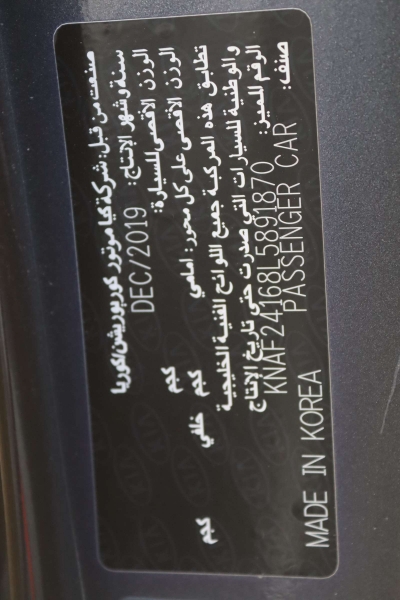 صنعت من قبل: شركة كيا موتورز كوربوريشن/كوريا
سنة وشهر الإنتاج: DEC/2019
الوزن الأقصى للسيارة: كجم
الوزن الأقصى على كل محور: امامي كجم خلفي كجم
تطابق هذه المركبة جميع اللوائح الفنية الخليجية
والوطنية للسيارات التي صدرت حتى تاريخ الإنتاج
الرقم المميز: KNAF24168L5891870
صنف: PASSENGER CAR
MADE IN KOREA